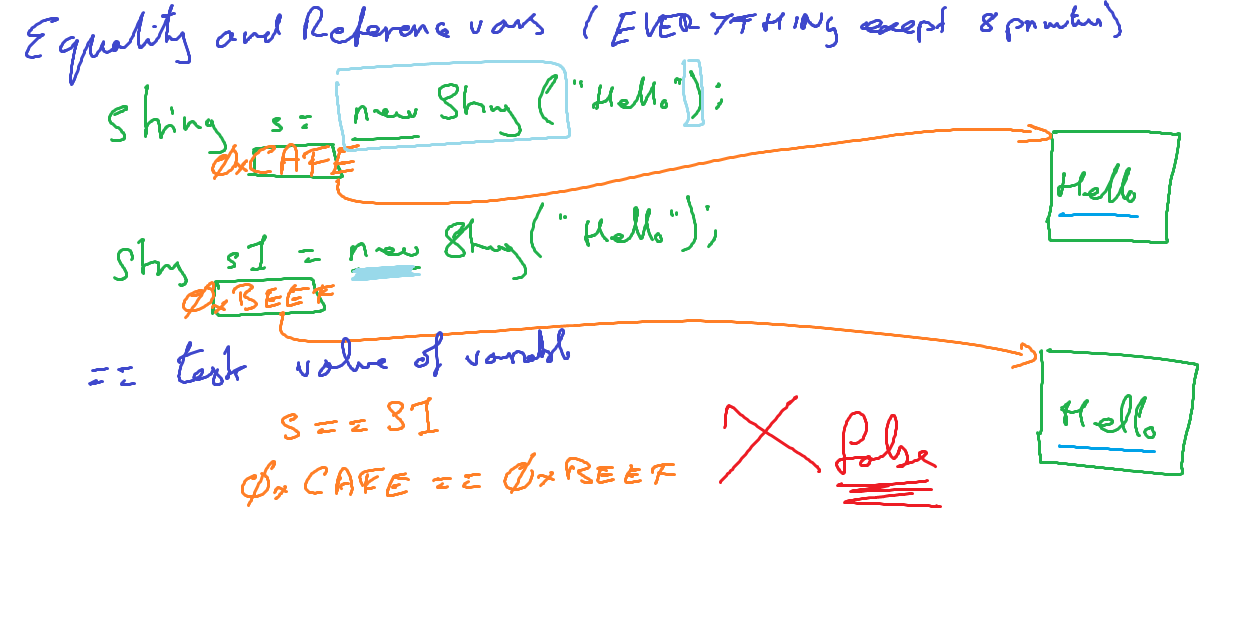 Equality and Reference vars (EVERYTHING except 8 primitives)
String s = new String ("Hello");
0xCAFE
Hello
String s1 = new String ("Hello");
0xBEEF
Hello
== test value of variable
s == s1
false
0xCAFE == 0xBEEF